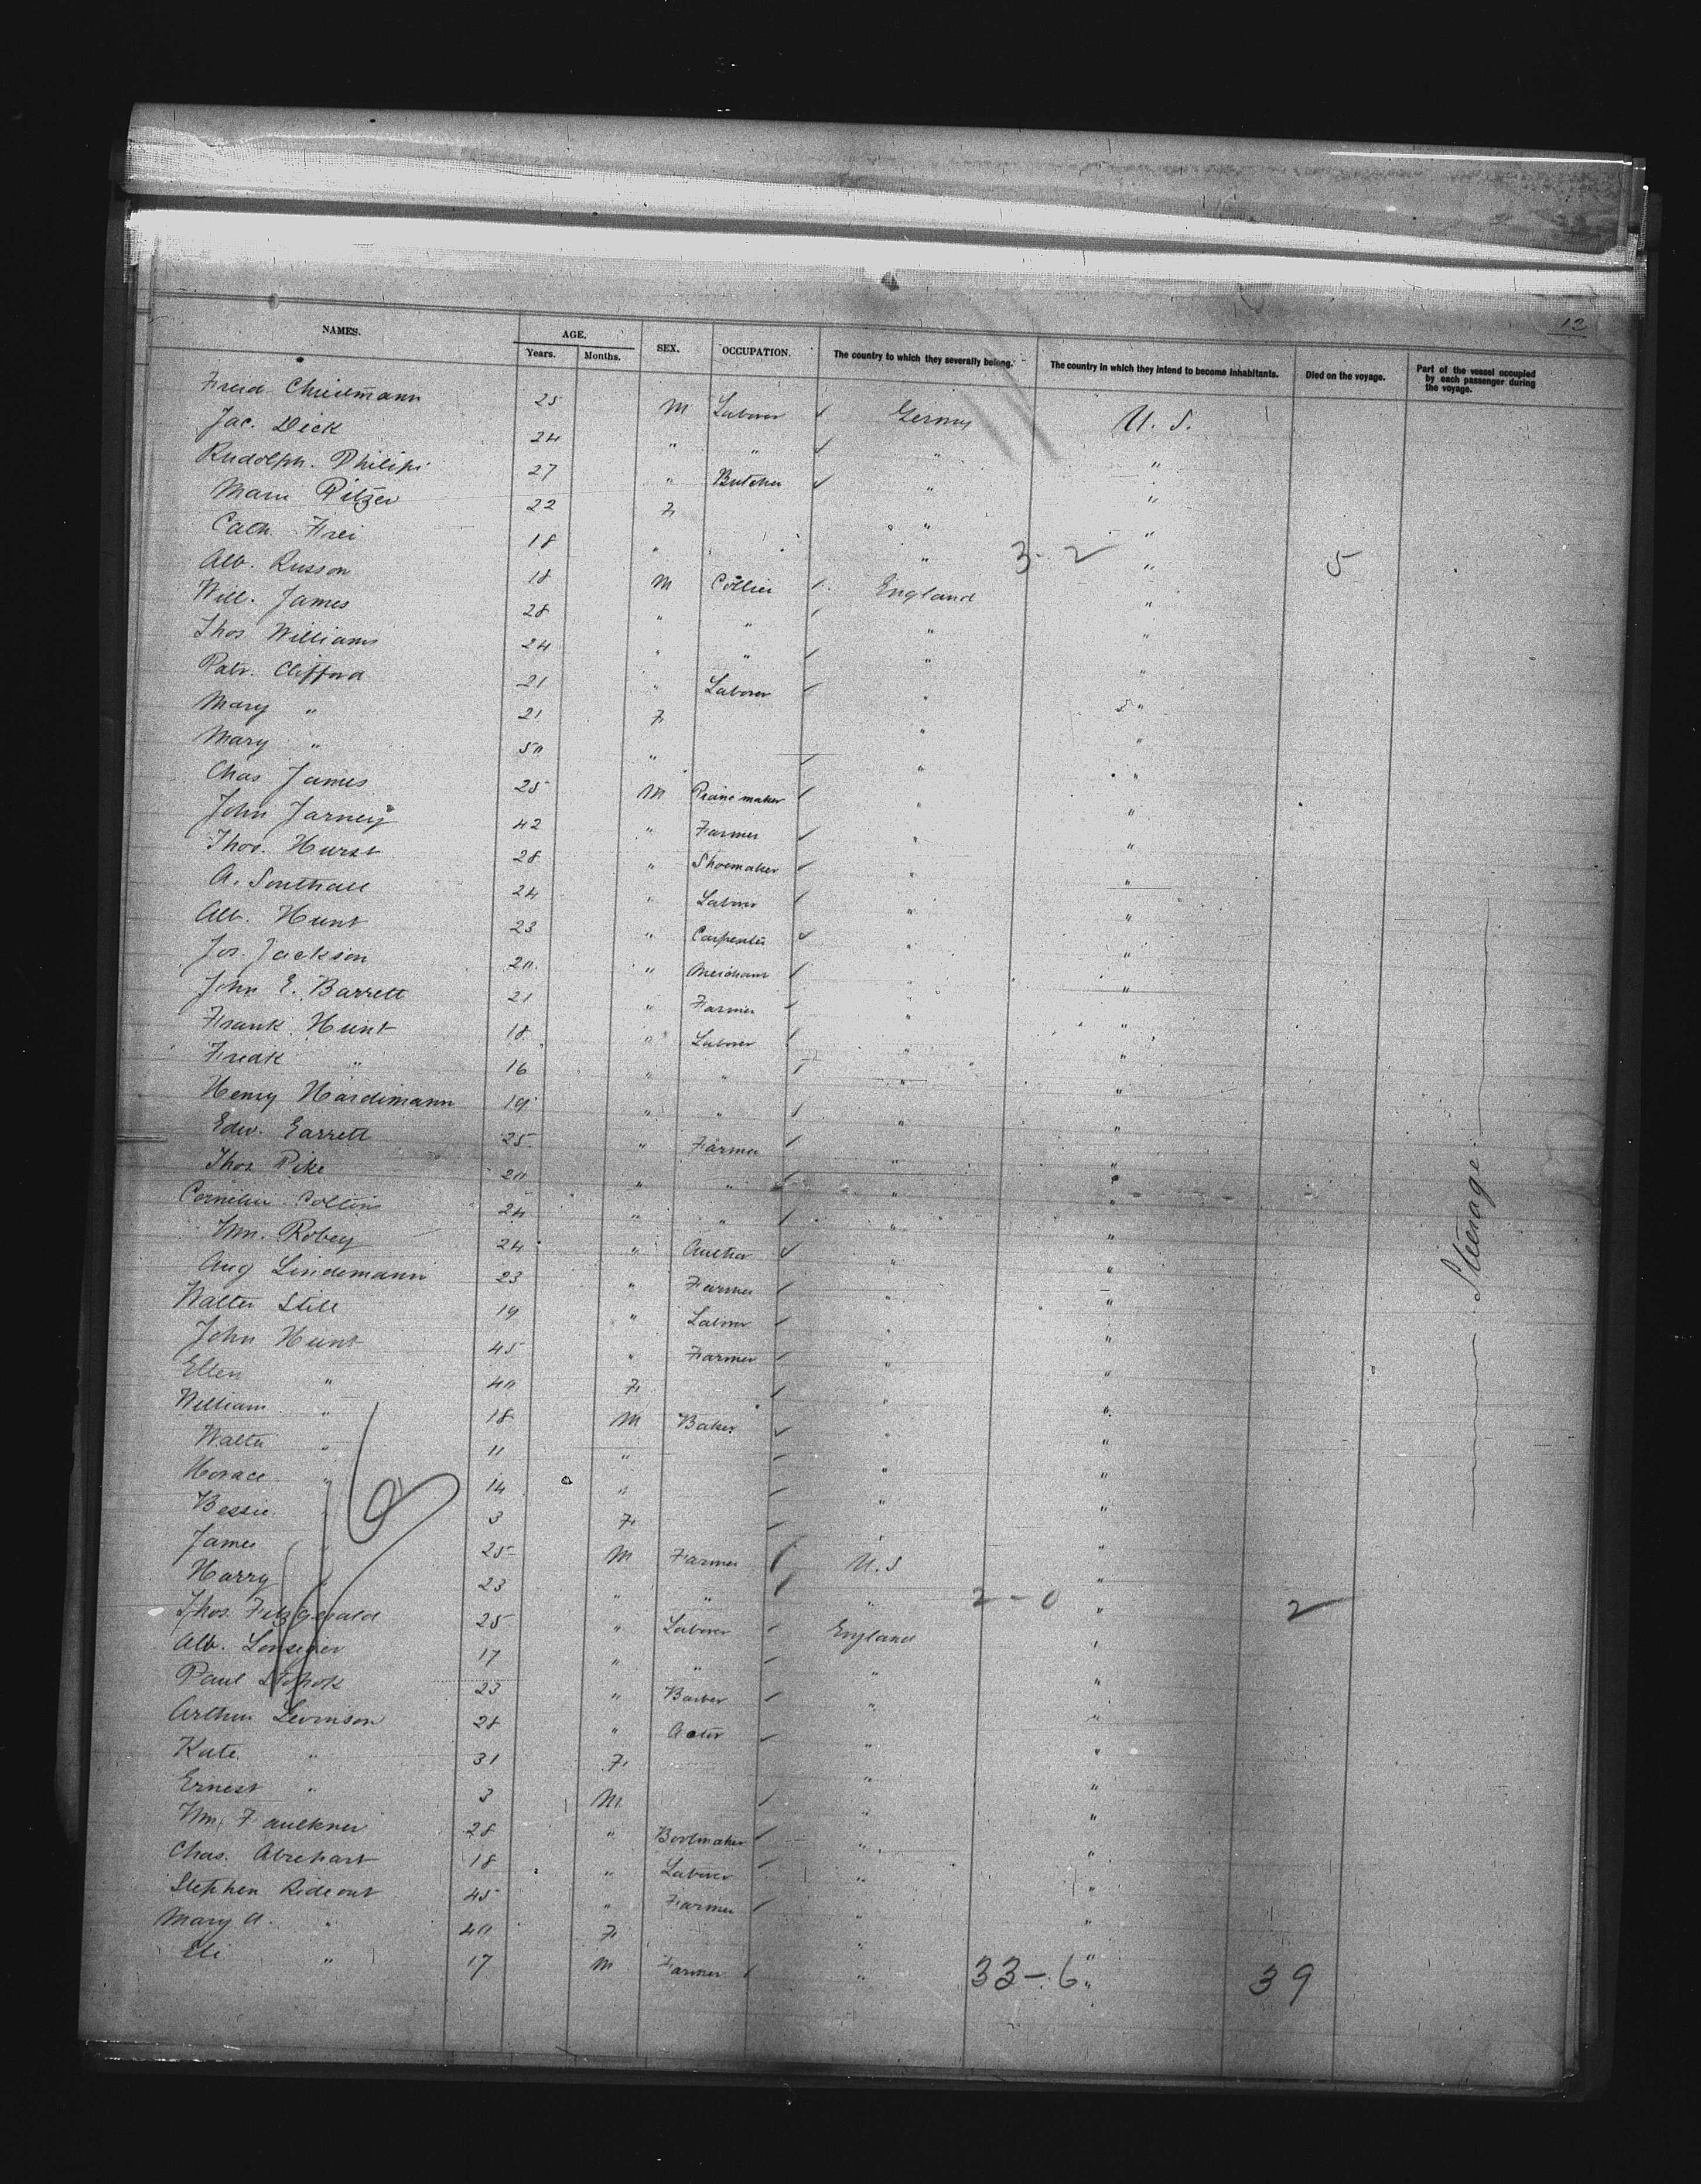 12
NAMES. AGE. Years. Months. SEX. OCCUPATION. The country to which they severally belong. The country in which they intend to become inhabitants. Died on the voyage. Part of the vessel occupied by each passenger during the voyage.
25 M Laborer Germy U. S.
Jac. Dick 24 " " " "
Rudolph. Philipi 27 " Butcher " "
Marie Pitzer 22 F " "
Cath Frei 18 " " 3-2 " 5
Alb. Russon 18 M Collier England "
Will. James 28 " " " "
Thos Williams 24 " " " "
Patr. Clifford 21 " Laborer " "
Mary " 21 F " "
Mary " 50 " " "
Chas James 25 M Piano maker " "
John 42 " Farmer " "
Thos. Hurst 28 " Shoemaker " "
A. Southall 24 " Laborer " "
Alb. Hunt 23 " Carpenter " "
Jos. Jackson 20 " " "
John E. Barrett 21 " Farmer " "
Frank Hunt 18 " Laborer " "
Fredk " 16 " " " "
Henry Hardimann 19 " " " "
Edw. Garrett 25 " Farmer " "
Thos Pike 20 " " " "
Collins 24 " " " "
Wm. Robey 24 " " "
Aug Lindemann 23 " Farmer " "
Walter Still 19 " Laborer " "
John Hunt 45 " Farmer " "
Ellen " 40 F " "
William " 18 M Baker " "
Walter " 11 " " "
Horace " 14 " " "
Bessie " 3 F " "
James " 25 M Farmer U.S "
Harry " 23 " " " 2-0 " 2
Thos. Fitzgerald 25 " Laborer England "
Alb. 17 " " " "
Paul 23 " Barber " "
Arthur Levinson 28 " Actor " "
Kate " 31 F " "
Ernest " 3 M " "
Wm. Faulkner 28 " Bootmaker " "
Chas. Abrehart 18 " Laborer " "
Stephen Rideout 45 " Farmer " "
Mary A. " 40 F " "
Eli " 17 M Farmer " 33-6 " 39
Steerage